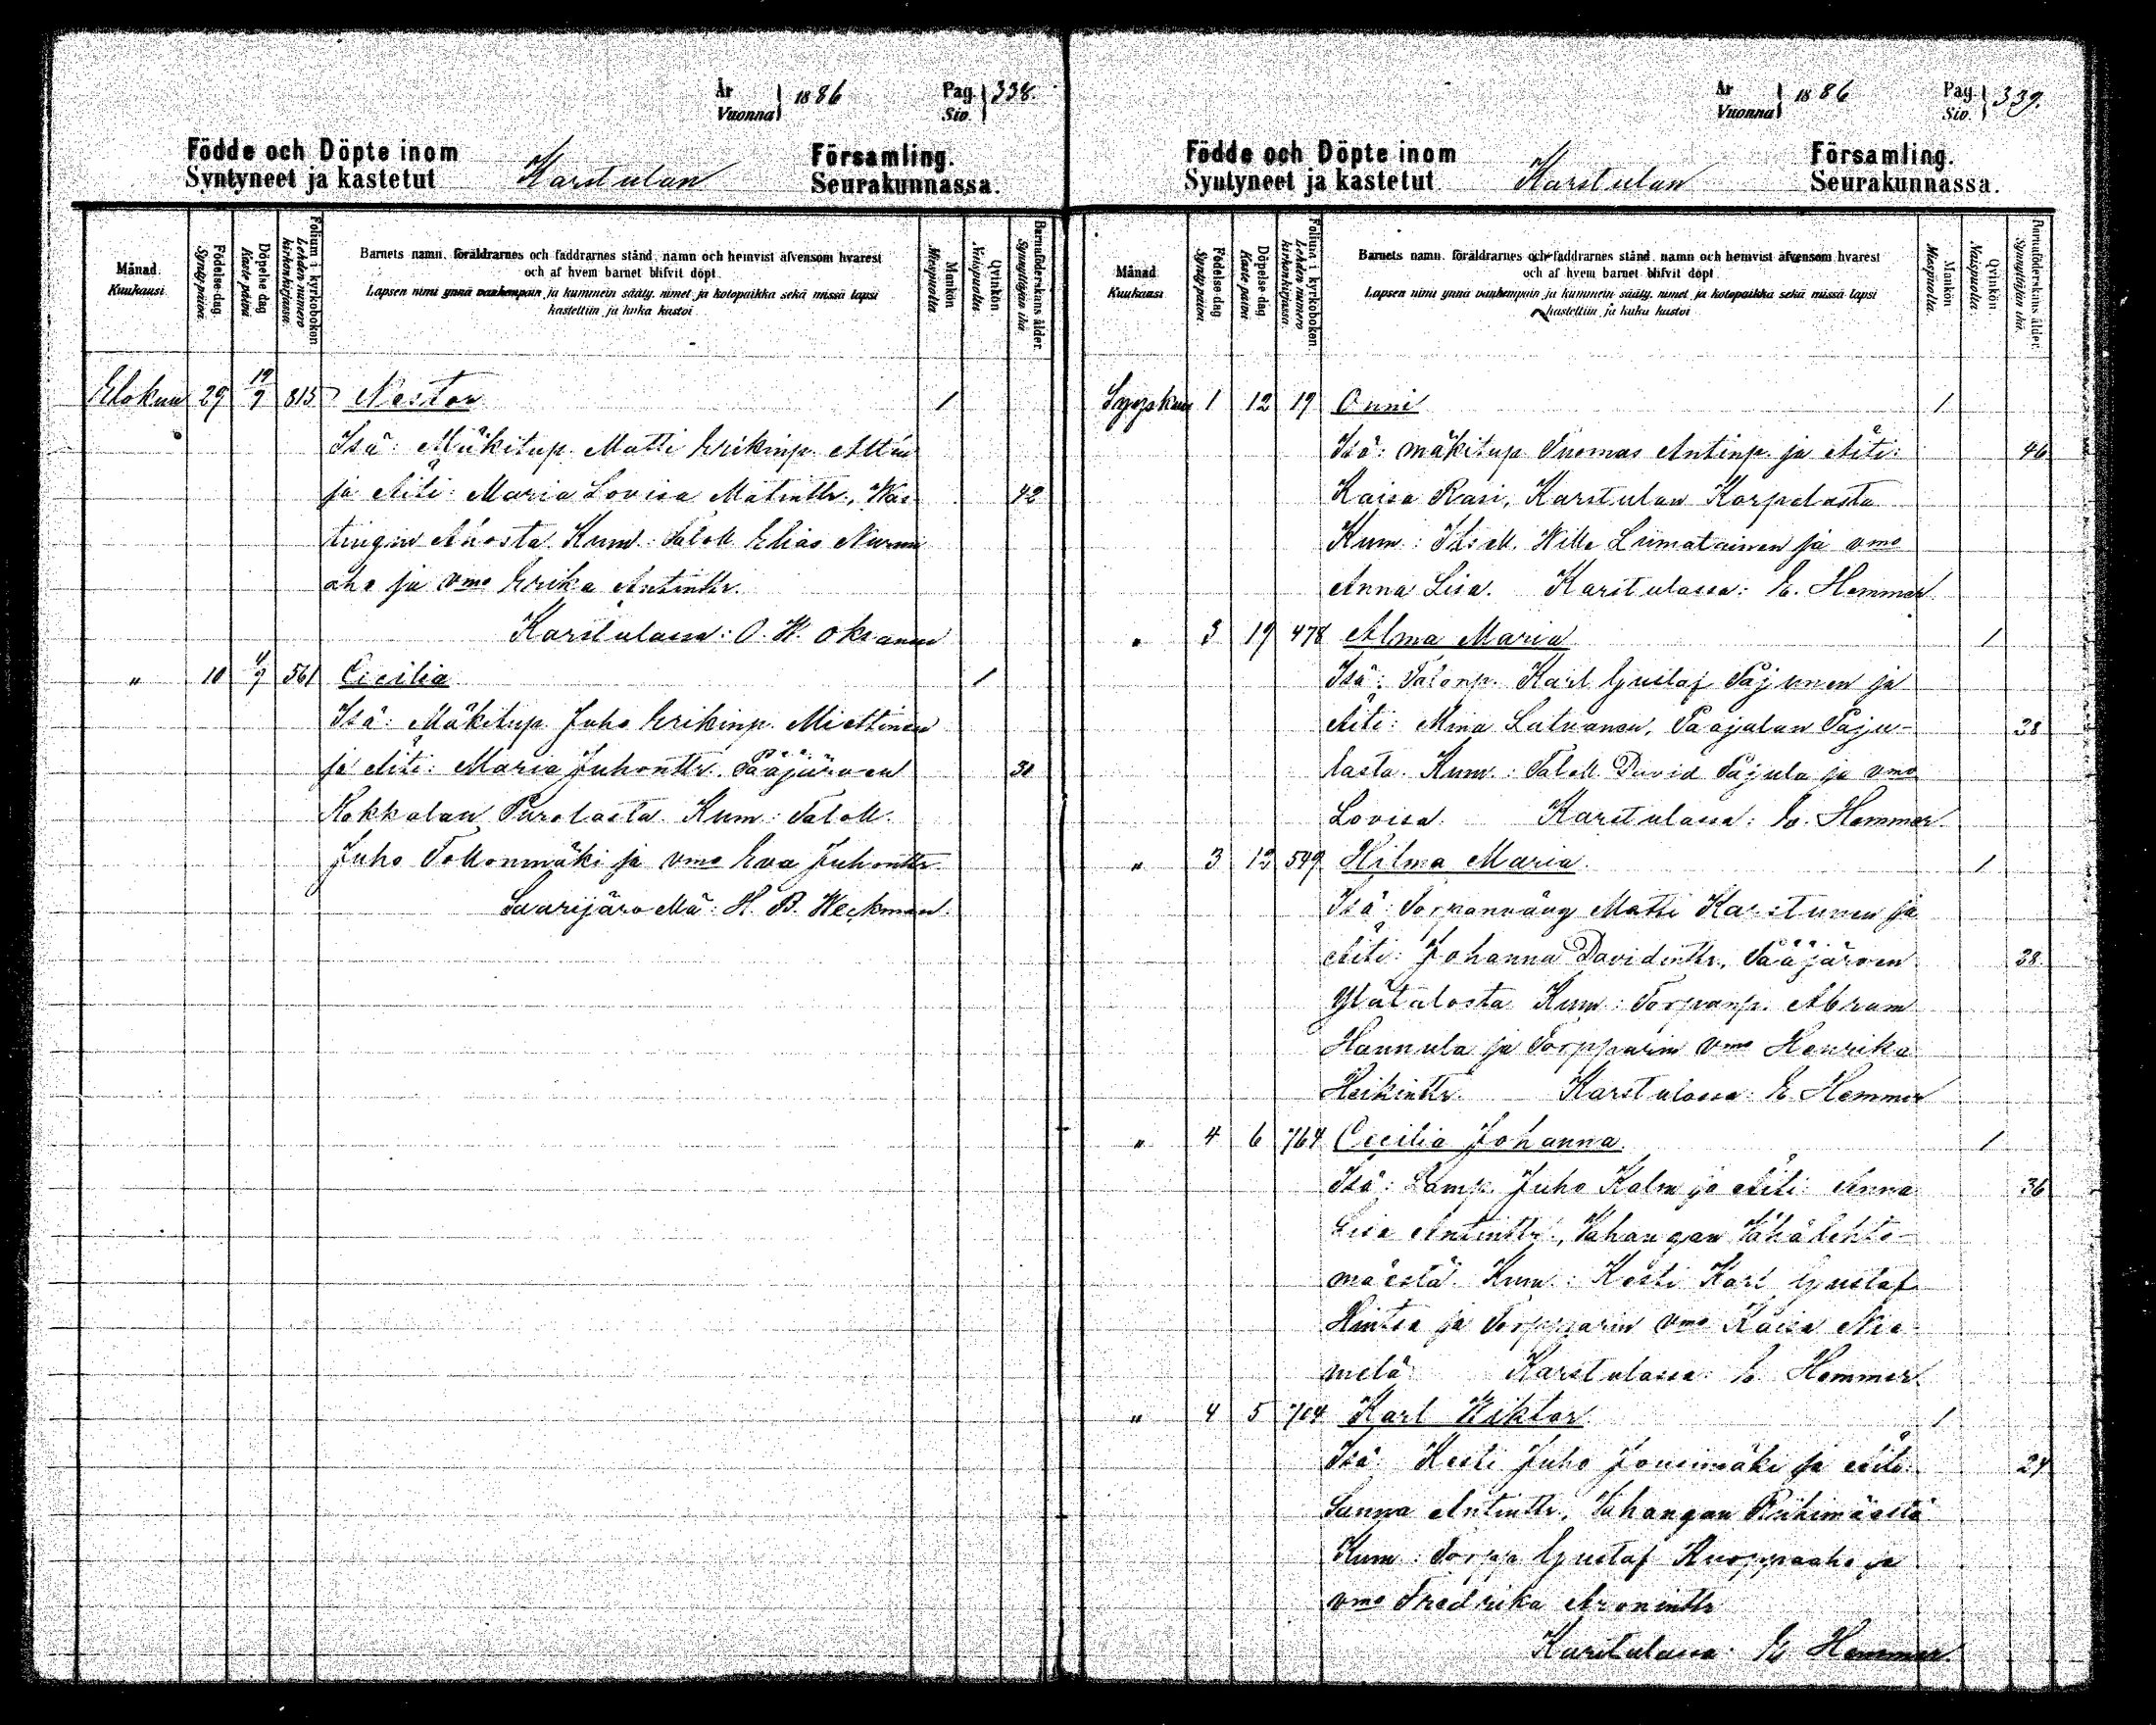 År Vuonna 1886 Pag. Siv. 338.
Födde och Döpte inom Karstulan Församling.
Syntyneet ja kastetut Seurakunnassa.
Månad. Kuukausi
Födelse-dag. Synty-päivä.
Döpelse-dag Kaste-päivä
Folium i kyrkoboken Lehden numero kirkonkirjassa.
Barnets namn, föräldrarnes och faddrarnes stånd, namn och hemvist äfvensom hvarest
och af hvem barnet blifvit döpt.
Lapsen nimi ynnä vanhempain ja kummein sääty, nimet ja kotopaikka sekä missä lapsi
kastettiin ja kuka kastoi
Mankön Miespuolta
Qvinkön Naispuolta
Barnaföderskans ålder. Synnyttäjän ikä.
Elokuu 29 19/9 815 Nestor 1
Isä: Mäkitup. Matti Erikinp.
ja Äiti: Maria Lovisa Matintr., 42
Ahosta. Kum: Taloll. Elias Nurmi
aho ja vmo Erika Antintr.
Karstulassa: O. W. Oksanen
" 10 561 Cecilia 1
Isä: Mäkitup. Juho Erikinp. Miettinen
ja Äiti: Maria Juhontr. Pääjärven 30
Kokkalan Purolasta. Kum: Taloll.
Juho Tollonmäki ja vmo Eva Juhontr.
Saarijärvellä: H. B. Weckman.
År Vuonna 1886 Pag. Siv. 339.
Födde och Döpte inom Karstulan Församling.
Syntyneet ja kastetut Seurakunnassa.
Månad Kuukausi
Födelse-dag Synty-päivä
Döpelse-dag Kaste-päivä
Folium i kyrkoboken. Lehden numero kirkonkirjassa.
Barnets namn, föräldrarnes och faddrarnes stånd, namn och hemvist äfvensom hvarest
och af hvem barnet blifvit döpt
Lapsen nimi ynnä vanhempain ja kummein sääty, nimet ja kotopaikka sekä missä lapsi
kastettiin ja kuka kastoi
Mankön Miespuolta.
Qvinkön Naispuolta.
Barnaföderskans ålder. Synnyttäjän ikä.
Syyskuu 1 12 19 Onni 1
Isä: mäkitup Tuomas Antinp. ja Äiti: 46
Kaisa Rasi, Karstulan Korpelasta
Kum: Wille Liimatainen ja vmo
Anna Lisa. Karstulassa: E. Hemmer
" 3 19 478 Alma Maria 1
Isä: Talonp. Karl Gustaf Pajunen ja
Äiti: Mina Latvanen, Paajalan Paju- 38
lasta. Kum: Taloll. David Pajula ja vmo
Lovisa. Karstulassa: E. Hemmer.
" 3 12 549 Hilma Maria. 1
Isä: Torpanväug Matti Karstunen ja
Äiti: Johanna Davidintr., Pääjärven 38.
Ylätalosta Kum: Torpanp. Abram
Hannula ja Torpparin vmo Henrika
Heikintr. Karstulassa: E Hemmer
" 4 6 764 Cecilia Johanna. 1
Isä: Juho Kalm ja Äiti: Anna 36
Lisa Antintr., Wahangan Vähälehto-
mäestä. Kum: Kesti Karl Gustaf
Hintsa ja Torpparin vmo Kaisa Nie-
melä Karstulassa: E. Hemmer.
" 4 5 704 Karl Wiktor 1
Isä: Kesti Juho Jousimäki ja Äiti: 24
Sanna Antintr., Wahangan Riihimäestä
Kum: Torpp Gustaf Kuoppaaho ja
vmo Fredrika Aronintr
Karstulassa: E Hemmer.